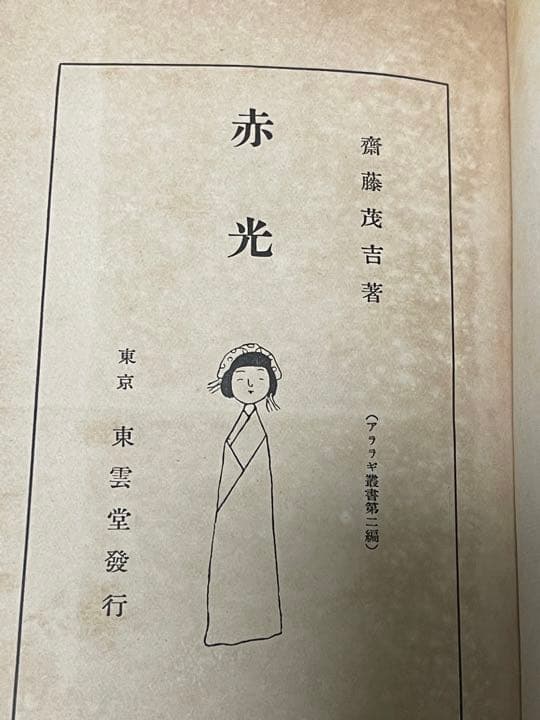 齋藤茂吉著
（アララギ叢書第二編）
赤光
東京 東雲堂發行